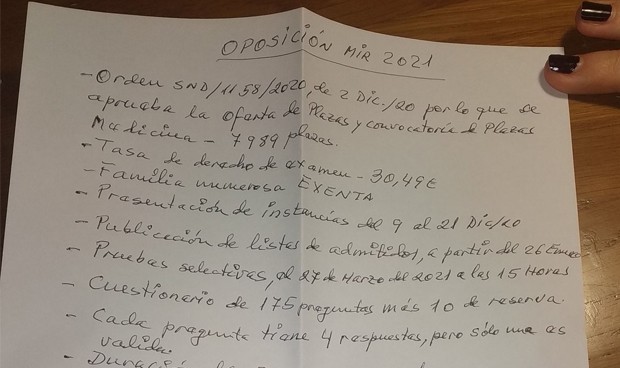 OPOSICIÓN MIR 2021
- Orden SND/1158/2020, de 2 Dic./20 por lo que se
aprueba la Oferta de Plazas y convocatoria de Plazas
Medicina - 7989 plazas.
- Tasa de derecho de examen - 30,49€
- Familia numerosa EXENTA
- Presentación de instancias del 9 al 21 Dic/20
- Publicación de listas de admitidos, a partir del 26 Enero
- Pruebas selectivas, el 27 de Marzo del 2021 a las 15 Horas
- Cuestionario de 175 preguntas más 10 de reserva.
- Cada pregunta tiene 4 respuestas, pero sólo una es
valida.
- Duración